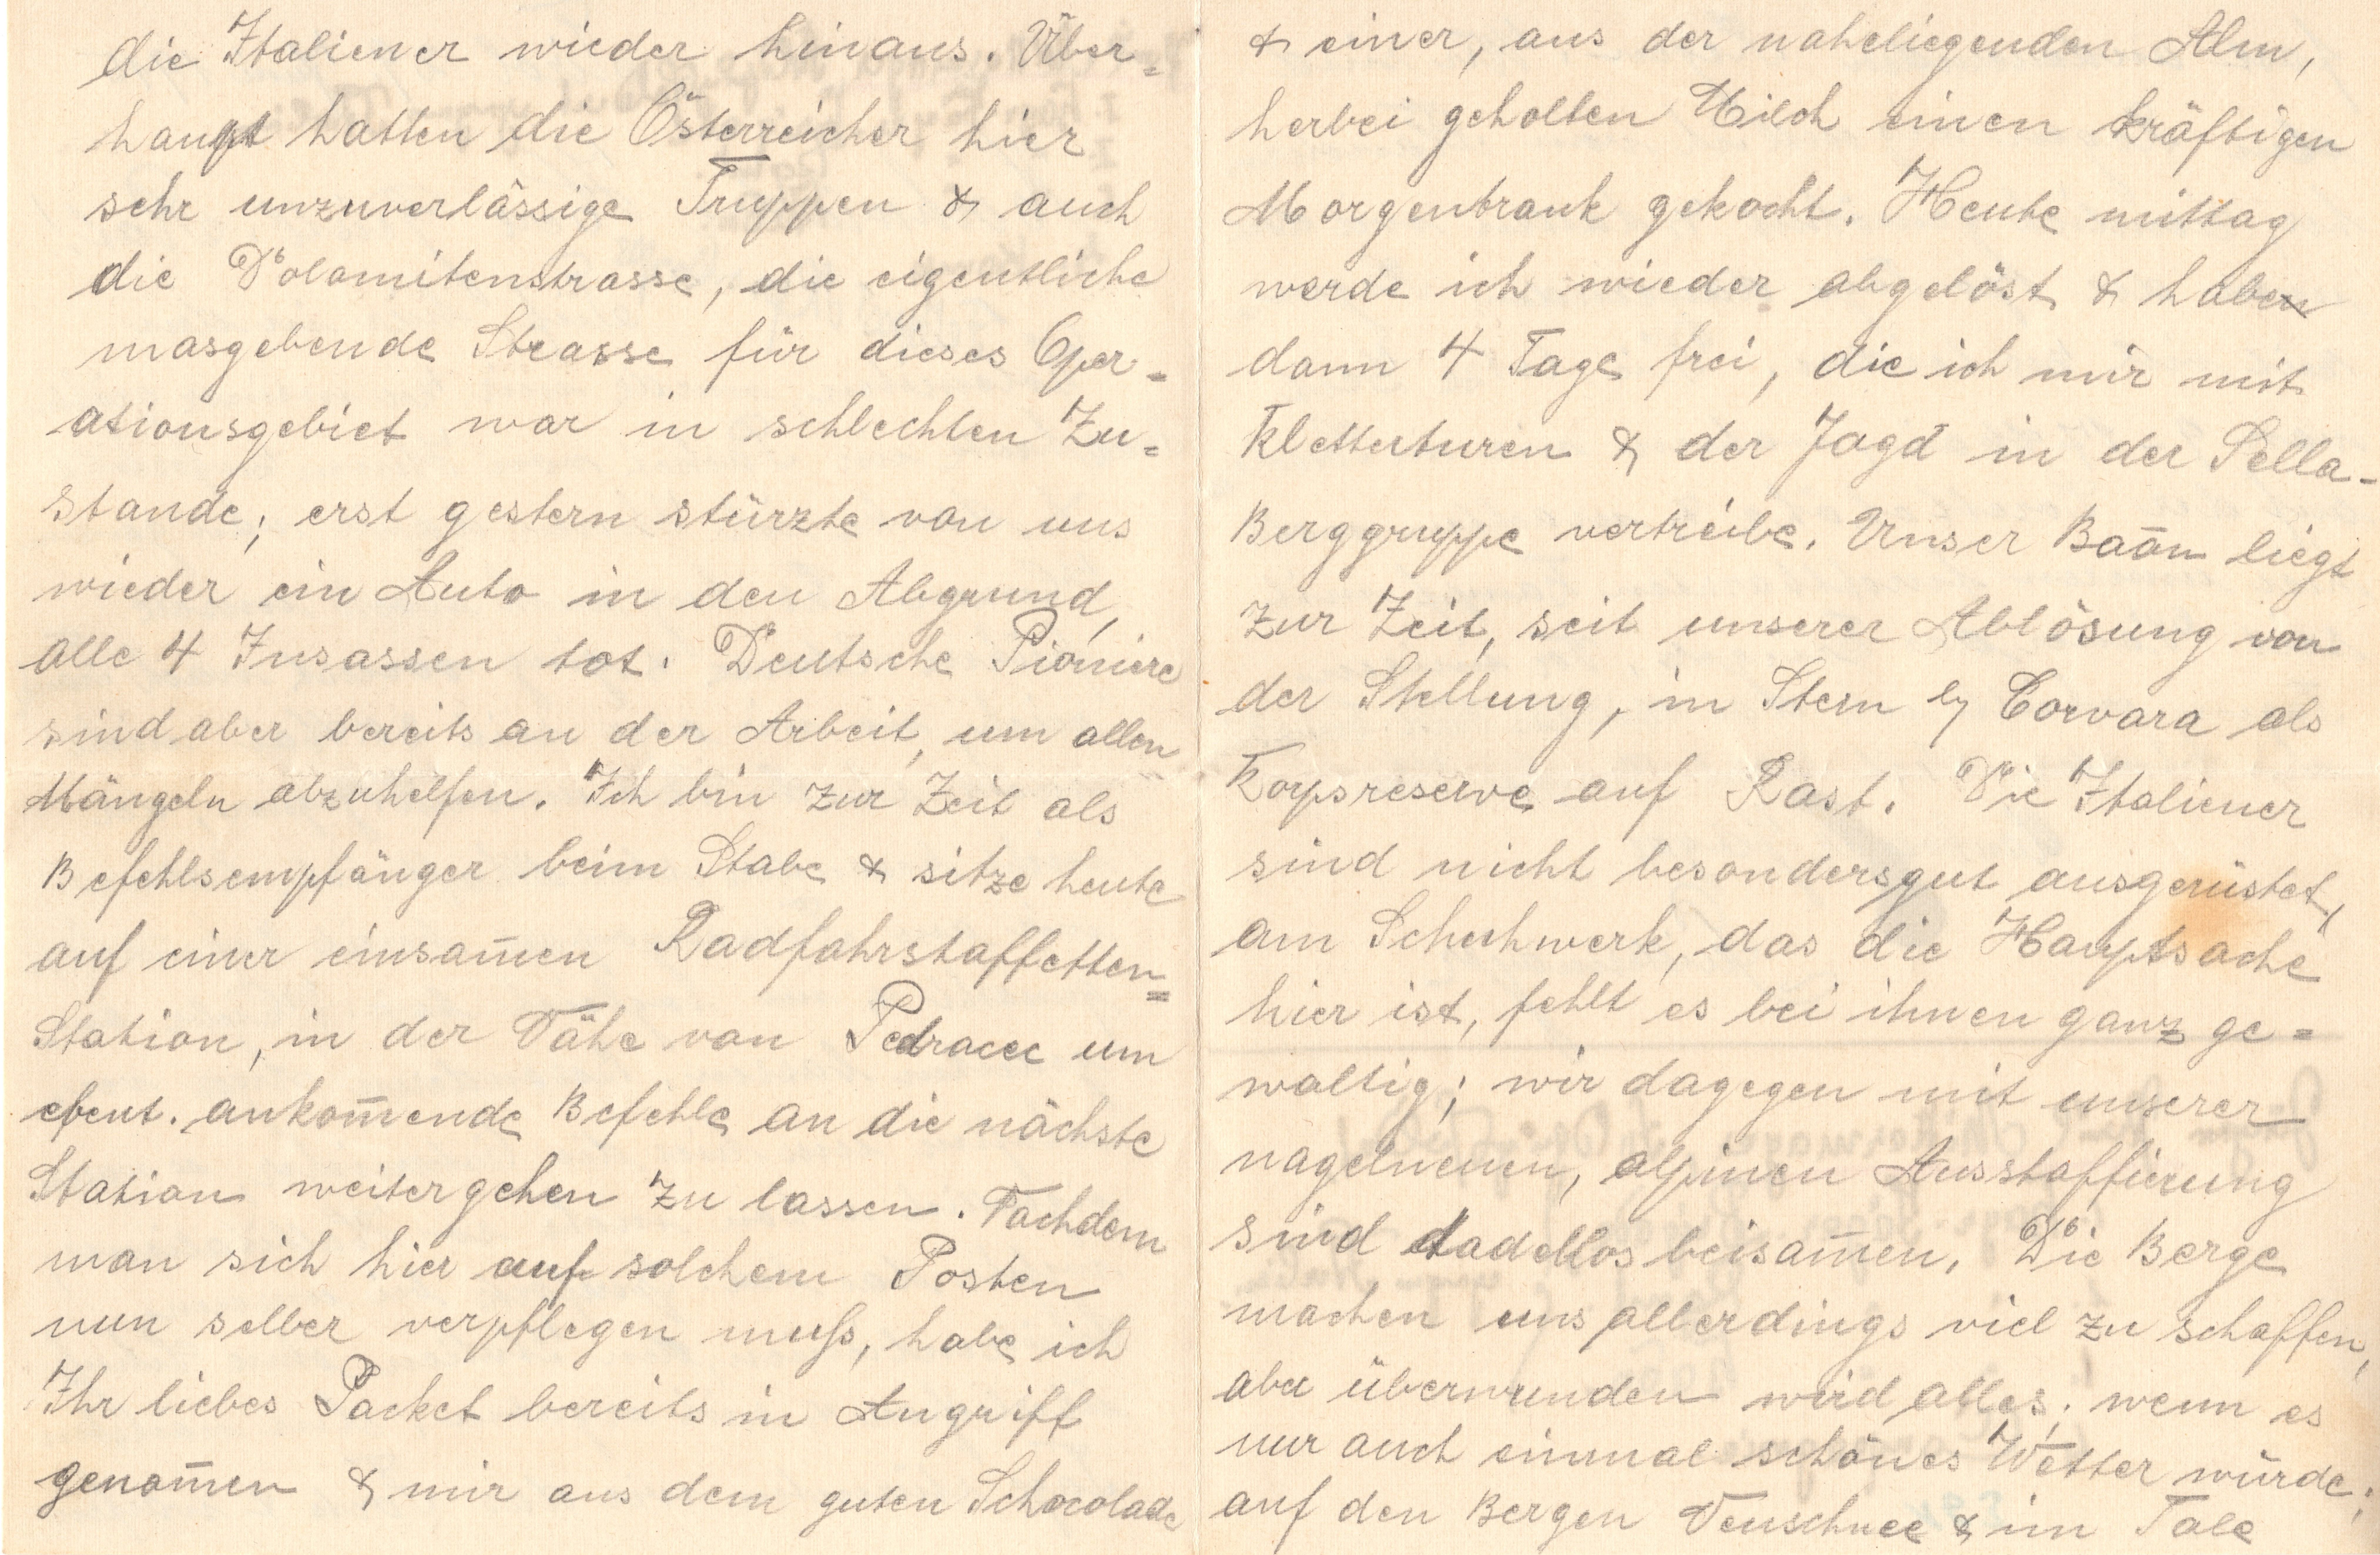 die Italiener wieder hinaus. Über=
haupt hatten die Österreicher hier
sehr unzuverlässige Truppen & auch
die Dolomitenstrasse, die eigentliche
masgebende Strasse für dieses Oper=
ationsgebiet war in schlechten Zu=
stande; erst gestern stürzte von uns
wieder ein Auto in den Abgrund,
alle 4 Insassen tot. Deutsche Pioniere
sind aber bereits an der Arbeit, um allen
Mängeln abzuhelfen. Ich bin zur Zeit als
Befehlsempfänger beim Stabe & sitze heute
auf einer einsam̄en Radfahrstaffetten=
Station, in der Nähe von Pedracec um
event. ankom̄ende Befehle an die nächste
Station weitergehen zu lassen. Nachdem
man sich hier auf solchem Posten
nun selber verpflegen muß, habe ich
Ihr liebes Packet bereits in Angriff
genom̄en & mir aus dem guten Schocolade
& einer, aus der naheliegenden Alm,
herbei geholten Milch einen kräftigen
Morgentrank gekocht. Heute mittag
werde ich wieder abgelöst & habe
dann 4 Tage frei, die ich mir mit
Kletterturen & der Jagd in der Sella-
Berggruppe vertreibe. Unser Baōn liegt
zur Zeit, seit unserer Ablösung von
der Stellung, in Stern b/ Corvara als
Korpsreserve auf Rast. Die Italiener
sind nicht besonders gut ausgerüstet,
am Schuhwerk, das die Hauptsache
hier ist, fehlt es bei ihnen ganz ge=
waltig; wir dagegen mit unserer
nagelneuen, alpinen Ausstaffierung
sind tadellos beisam̄en. Die Berge
machen uns allerdings viel zu schaffen,
aber überwunden wird alles; wenn es
nur auch einmal schönes Wetter würde;
auf den Bergen Neuschnee & im Tale